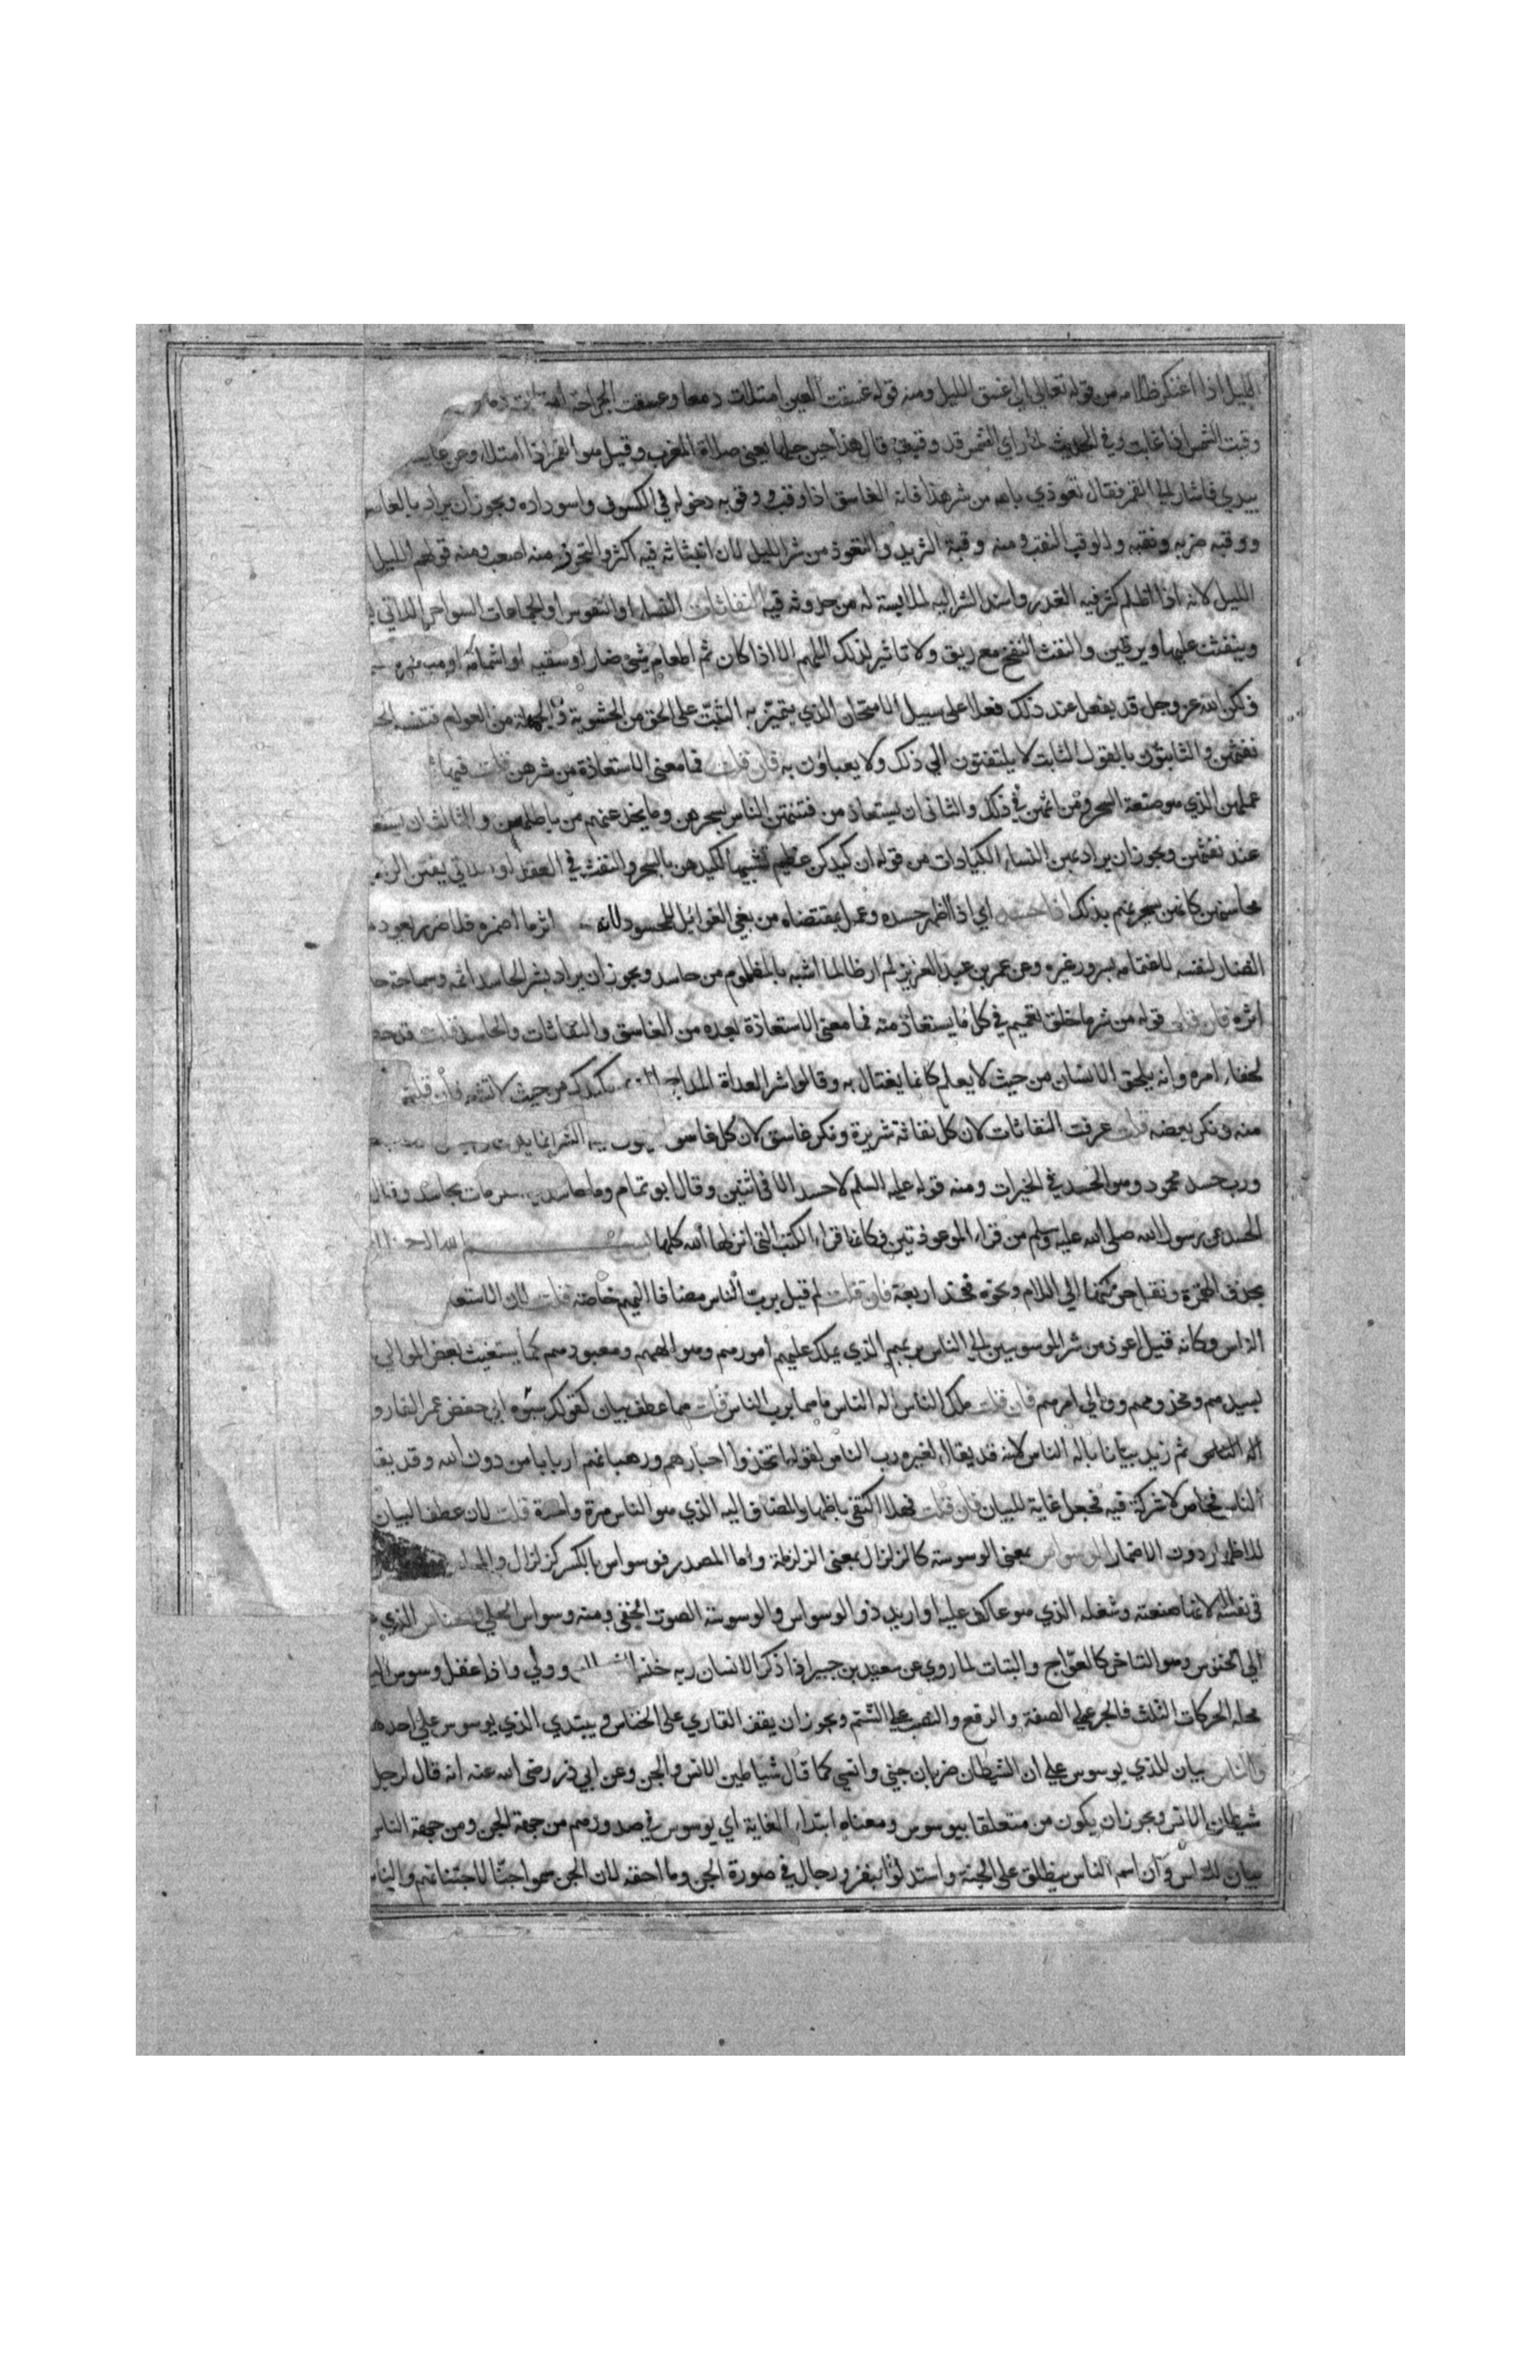 الليل اذا اعتكر ظلامه من قوله تعالي الي غسق الليل ومنه قوله غسقت العين امتلات دمعا وغسقت الجراحة امتلات دما
وقبت الشمس اذا غابت وفي الحديث لما راي الشمس قد وقبت قال هذا حين حلها يعني صلاة المغرب وقيل هو القمر اذا امتلا وعن عايشه
بيدي فاشار الي القمر فقال تعوذي بالله من شر هذا فانه الغاسق اذا وقب ووقوبه دخوله في الكسوف واسوداده ويجوز ان يراد بالغاسق
ووقبه ضربه ونقبه والوقب النقب ومنه وقبة الثريد والتعوذ من شر الليل لان انبثاثه فيه اكثر والتحرز منه اصعب ومنه قولهم الليل
الليل لانه اذا اظلم كثر فيه الغدر واسند الشر اليه لملابسته له من حدوثه فيه النفاثات النساء او النفوس او الجماعات السواحر اللاتي
وينفثن عليها ويرقين والنفث النفخ مع ريق ولا تاثير لذلك اللهم الا اذا كان ثم اطعام شئ ضار او سقيه او اشمامه او
ولكن الله عز وجل قد يفعل عند ذلك فعلا علي سبيل الامتحان الذي يتميز به الثبت علي الحق من الحشوية والجهلة من العوام فتنسبه
نفثهن والثابتون بالقول الثابت لا يلتفتون الي ذلك ولا يعباون به فان قلت فما معني الاستعاذة من شرهن قلت فيها
عملهن الذي هو صنعة السحر ومن اثمهن في ذلك والثاني ان يستعاذ من فتنتهن الناس بسحرهن وما يخدعنهم من باطلهن والثالث ان يستعاذ
عند نفثهن ويجوز ان يراد بهن النساء الكيادات من قوله ان كيدكن عظيم تشبيها لكيدهن بالسحر والنفث في العقد او اللاتي يفتن الرجال
محاسنهن كانهن يسحرنهم بذلك اذا حسد اي اذا اظهر حسده وعمل بمقتضاه من بغي الغوايل للمحسود لانه اثر ما اضمره فلا ضرر يعود
الضار لنفسه لاغتمامه بسرور غيره وعن عمر بن عبد العزيز لم ار ظالما اشبه بالمظلوم من حاسد ويجوز ان يراد بشر الحاسد اثمه وسماجة
اثره فان قلت قوله من شر ما خلق تعميم في كل ما يستعاذ منه فما معني الاستعاذة بعده من الغاسق والنفاثات والحاسد قلت قد
لخفاء امره وانه يلحق الانسان من حيث لا يعلم كانما يغتال به وقالوا شر العداة يكيدك من حيث لا تشعر فان قلت
منه ونكر بعضه قلت عرفت النفاثات لان كل نفاثة شريرة ونكر غاسق لان كل غاسق
ورب حسد محمود وهو الحسد في الخيرات ومنه قوله عليه السلم لا حسد الا في اثنتين وقال ابو تمام وما حاسد في المكرمات بحاسد وقال
الحسد عن رسول الله صلي الله عليه وسلم من قراء المعوذتين فكانما قراء الكتب التي انزلها الله كلها بسم الله
بحذف الهمزة ونقل حركتها الي اللام ونحوه فخذ اربعة فان قلت لم قيل برب الناس مضافا اليهم خاصة قلت لان الاستعاذة
الناس وكانه قيل اعوذ من شر الموسوس الي الناس بربهم الذي يملك عليهم امورهم وهو الههم ومعبودهم كما يستغيث بعض الموالي
بسيدهم ومخدومهم ووالي امرهم فان قلت ملك الناس اله الناس ما هما برب الناس قلت هما عطف بيان كقولك سيرة ابي حفص عمر الفاروق
اله الناس ثم زيد بيانا باله الناس لانه قد يقال لغيره رب الناس لقوله اتخذوا احبارهم ورهبانهم اربابا من دون الله وقد يقال
الناس فخاص لا شركة فيه فجعل غاية للبيان فان قلت فهلا اكتفي باظهار المضاف اليه الذي هو الناس مرة واحدة قلت لان عطف البيان
للاظهار دون الاضمار الوسواس بمعني الوسوسة كالزلزال بمعني الزلزلة واما المصدر فوسواس بالكسر كزلزال والمراد
في نفسه لانها صنعته وشغله الذي هو عاكف عليه او اريد ذو الوسواس والوسوسة الصوت الخفي ومنه وسواس الحلي والخناس الذي
الي الخنوس وهو التاخر كالعواج والبتات لما روي عن سعيد بن جبير اذا ذكر الانسان ربه خنس الشيطان وولي واذا غفل وسوس اليه
محله الحركات الثلث فالجر علي الصفة والرفع والنصب علي الشتم ويجوز ان يقف القاري علي الخناس ويبتدي الذي يوسوس علي احد
والناس بيان للذي يوسوس علي ان الشيطان ضربان جني وانسي كما قال شياطين الانس والجن وعن ابي ذر رضي الله عنه انه قال لرجل
شيطان الانس ويجوز ان يكون من متعلقا بيوسوس ومعناه ابتداء الغاية اي يوسوس في صدورهم من جهة الجن ومن جهة الناس
بيان للناس وان اسم الناس ينطلق علي الجنة واستدلوا بنفر ورجال في صورة الجن وما احقه لان الجن سموا جنا لاجتنانهم والناس